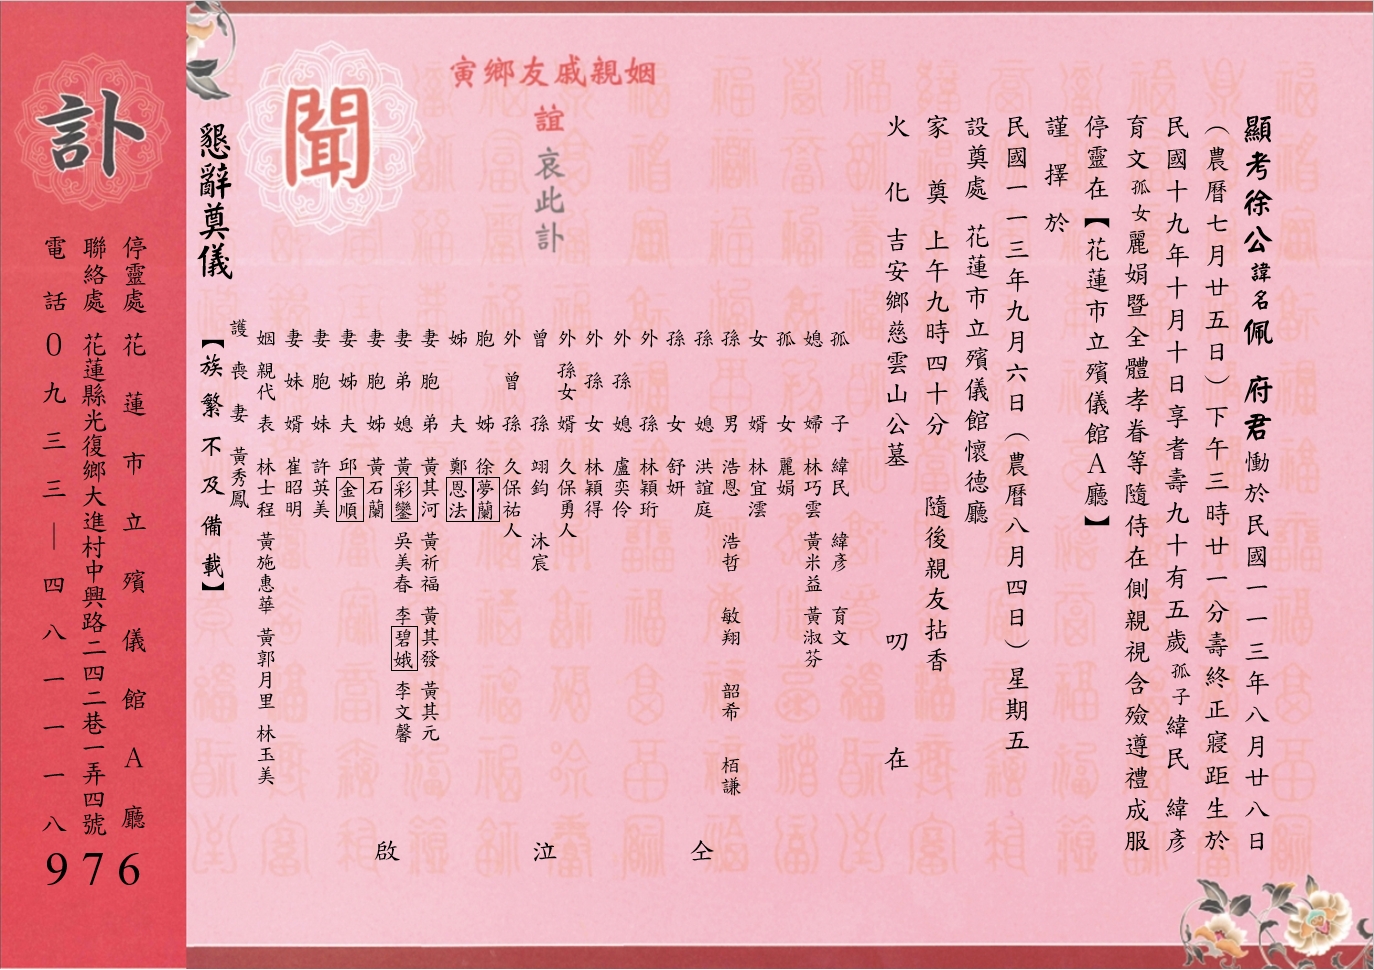 顯考徐公諱名佩　府君慟於民國一一三年八月廿八日
（農曆七月廿五日）下午三時廿一分壽終正寢距生於
民國十九年十月十日享耆壽九十有五歲孤子緯民　緯彥
育文孤女麗娟暨全體孝眷等隨侍在側親視含殮遵禮成服
停靈在【花蓮市立殯儀館Ａ廳】
謹擇於
民國一一三年九月六日（農曆八月四日）星期五
設奠處　花蓮市立殯儀館懷德廳
家奠　上午九時四十分　隨後親友拈香
火化　吉安鄉慈雲山公墓　叨在
姻親戚友鄉寅
誼
哀此訃
聞
孤子　緯民　緯彥　育文
媳婦　林巧雲　黃米益　黃淑芬
孤女　麗娟
女婿　林宜澐
孫男　浩恩　浩哲　敏翔　韶希　栢謙
孫媳　洪誼庭
孫女　舒妍
外孫　林穎珩
外孫媳　盧奕伶
外孫女　林穎得
外孫女婿　久保勇人
曾孫　翊鈞　沐宸
外曾孫　久保祐人
胞姊　徐夢蘭
姊夫　鄭恩法
妻胞弟　黃其河　黃祈福　黃其發　黃其元
妻弟媳　黃彩鑾　吳美春　李碧娥　李文馨
妻胞姊　黃石蘭
妻姊夫　邱金順
妻胞妹　許英美
妻妹婿　崔昭明
姻親代表　林士程　黃施惠華　黃郭月里　林玉美
護喪妻　黃秀鳳
仝泣啟
【族繁不及備載】
懇辭奠儀
訃
停靈處　花蓮市立殯儀館Ａ廳
聯絡處　花蓮縣光復鄉大進村中興路二四二巷一弄四號
電話０九三三｜四八一一一八
976